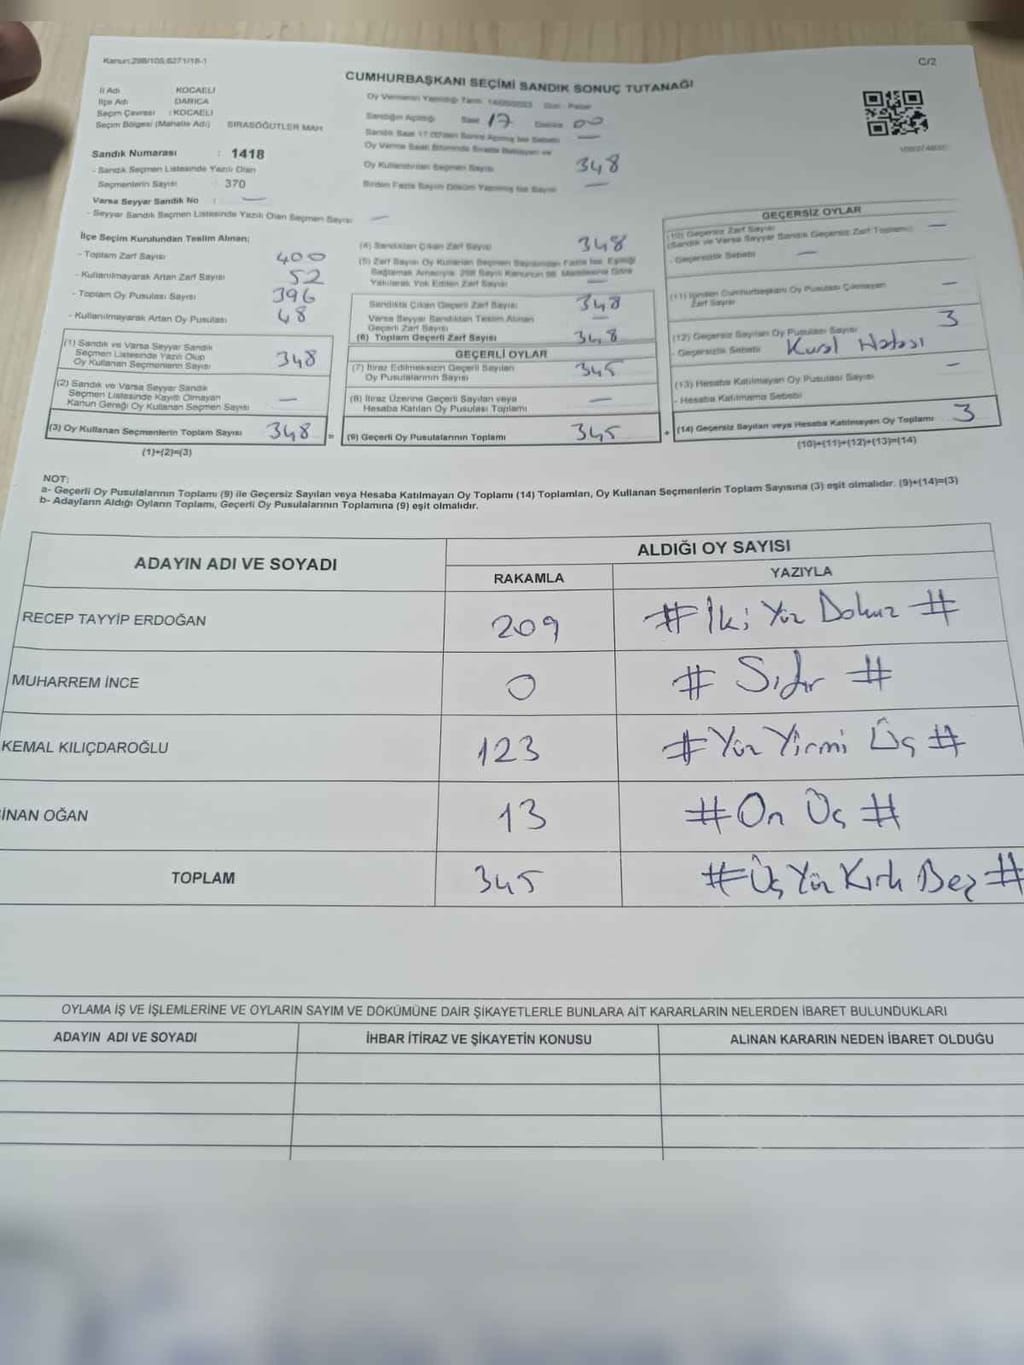 Kanun:298/105,6271/18-1
C/2
CUMHURBAŞKANI SEÇİMİ SANDIK SONUÇ TUTANAĞI
İl Adı KOCAELİ
İlçe Adı DARICA
Seçim Çevresi : KOCAELİ
Seçim Bölgesi (Mahalle Adı) SIRASÖĞÜTLER MAH
Sandık Numarası : 1418
- Sandık Seçmen Listesinde Yazılı Olan
Seçmenlerin Sayısı : 370
Varsa Seyyar Sandık No : —
- Seyyar Sandık Seçmen Listesinde Yazılı Olan Seçmen Sayısı —
Oy Vermenin Yapıldığı Tarih 14/05/2023 Gün Pazar
Sandığın Açıldığı Saat 17 Dakika 00
Sandık Saat 17.00'den Sonra Açılmış İse Sebebi —
Oy Verme Saati Bitiminde Sırada Bekleyen ve
Oy Kullandırılan Seçmen Sayısı 348
Birden Fazla Sayım Döküm Yapılmış İse Sayısı —
İlçe Seçim Kurulundan Teslim Alınan;
- Toplam Zarf Sayısı 400
- Kullanılmayarak Artan Zarf Sayısı 52
- Toplam Oy Pusulası Sayısı 396
- Kullanılmayarak Artan Oy Pusulası 48
(1) Sandık ve Varsa Seyyar Sandık
Seçmen Listesinde Yazılı Olup
Oy Kullanan Seçmenlerin Sayısı 348
(2) Sandık ve Varsa Seyyar Sandık
Seçmen Listesinde Kayıtlı Olmayan
Kanun Gereği Oy Kullanan Seçmen Sayısı —
(3) Oy Kullanan Seçmenlerin Toplam Sayısı 348 =
(1)+(2)=(3)
(4) Sandıktan Çıkan Zarf Sayısı 348
(5) Zarf Sayısı Oy Kullanan Seçmen Sayısından Fazla İse, Eşitliği
Sağlamak Amacıyla, 298 Sayılı Kanunun 98. Maddesine Göre
Yakılarak Yok Edilen Zarf Sayısı —
Sandıkta Çıkan Geçerli Zarf Sayısı 348
Varsa Seyyar Sandıktan Teslim Alınan
Geçerli Zarf Sayısı —
(6) Toplam Geçerli Zarf Sayısı 348
GEÇERLİ OYLAR
(7) İtiraz Edilmeksizin Geçerli Sayılan
Oy Pusulalarının Sayısı 345
(8) İtiraz Üzerine Geçerli Sayılan veya
Hesaba Katılan Oy Pusulası Toplamı —
(9) Geçerli Oy Pusulalarının Toplamı 345 +
GEÇERSİZ OYLAR
(10) Geçersiz Zarf Sayısı
(Sandık ve Varsa Seyyar Sandık Geçersiz Zarf Toplamı) —
- Geçersizlik Sebebi —
(11) İçinden Cumhurbaşkanı Oy Pusulası Çıkmayan
Zarf Sayısı —
(12) Geçersiz Sayılan Oy Pusulası Sayısı 3
- Geçersizlik Sebebi Kural Hatası
(13) Hesaba Katılmayan Oy Pusulası Sayısı —
- Hesaba Katılmama Sebebi
(14) Geçersiz Sayılan veya Hesaba Katılmayan Oy Toplamı 3
(10)+(11)+(12)+(13)=(14)
NOT:
a- Geçerli Oy Pusulalarının Toplamı (9) ile Geçersiz Sayılan veya Hesaba Katılmayan Oy Toplamı (14) Toplamları, Oy Kullanan Seçmenlerin Toplam Sayısına (3) eşit olmalıdır. (9)+(14)=(3)
b- Adayların Aldığı Oyların Toplamı, Geçerli Oy Pusulalarının Toplamına (9) eşit olmalıdır.
ADAYIN ADI VE SOYADI ALDIĞI OY SAYISI
RAKAMLA YAZIYLA
RECEP TAYYİP ERDOĞAN 209 # İki Yüz Dokuz #
MUHARREM İNCE 0 # Sıfır #
KEMAL KILIÇDAROĞLU 123 # Yüz Yirmi Üç #
SİNAN OĞAN 13 # On Üç #
TOPLAM 345 # Üç Yüz Kırk Beş #
OYLAMA İŞ VE İŞLEMLERİNE VE OYLARIN SAYIM VE DÖKÜMÜNE DAİR ŞİKAYETLERLE BUNLARA AİT KARARLARIN NELERDEN İBARET BULUNDUKLARI
ADAYIN ADI VE SOYADI İHBAR İTİRAZ VE ŞİKAYETİN KONUSU ALINAN KARARIN NEDEN İBARET OLDUĞU